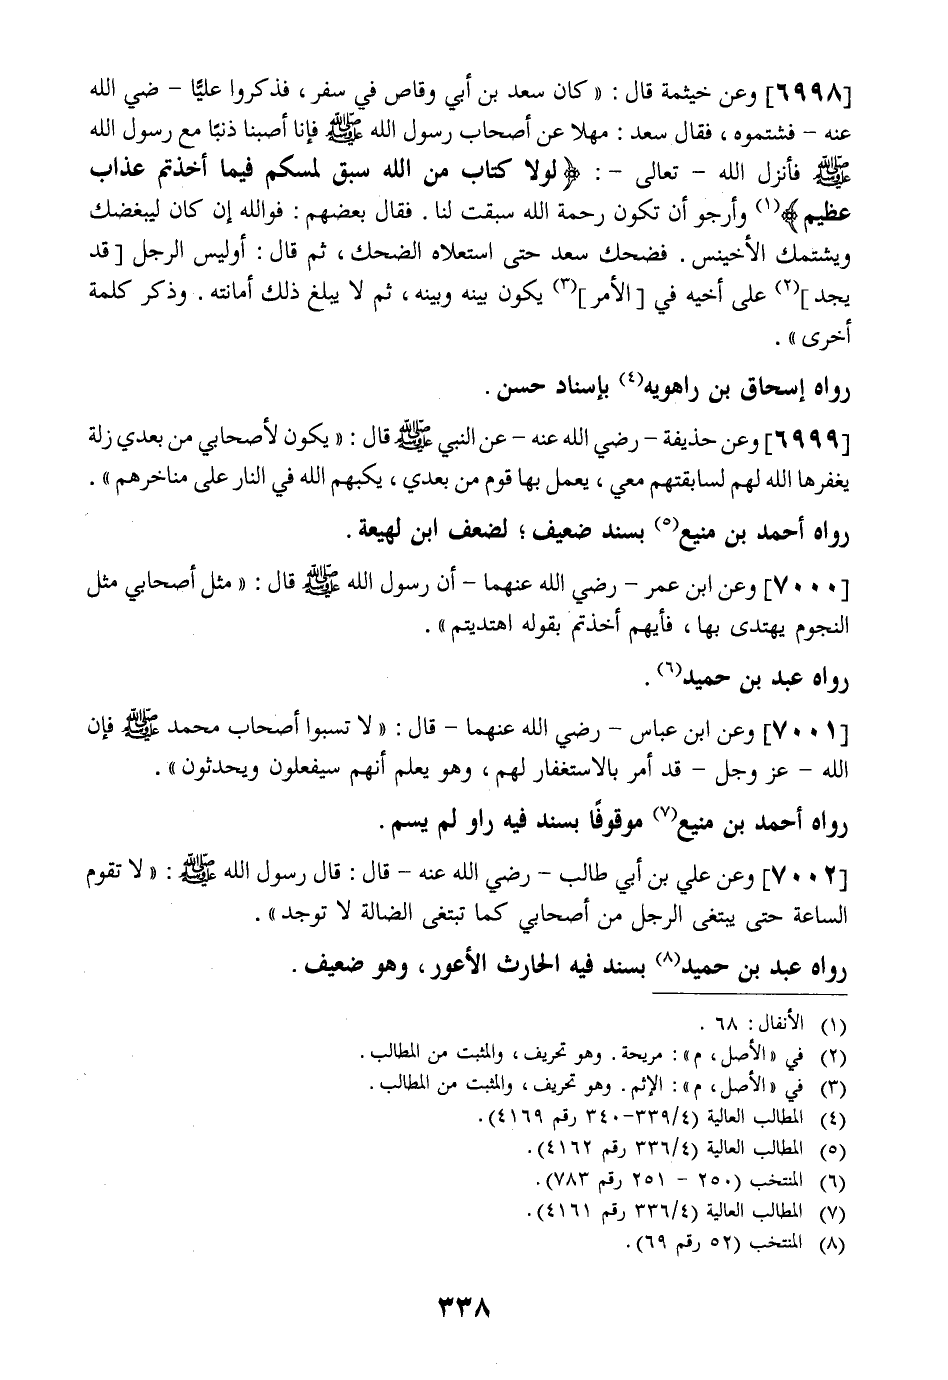 [٦٩٩٨] وعن خيثمة قال : « كان سعد بن أبي وقاص في سفر ، فذكروا عليًّا – ضي الله
عنه – فشتموه ، فقال سعد : مهلا عن أصحاب رسول الله ﷺ فإنا أصبنا ذنبًا مع رسول الله
ﷺ فأنزل الله – تعالى – : ﴿ لولا كتاب من الله سبق لمسكم فيما أخذتم عذاب
عظيم ﴾(١) وأرجو أن تكون رحمة الله سبقت لنا . فقال بعضهم : فوالله إن كان ليبغضك
ويشتمك الأخينس . فضحك سعد حتى استعلاه الضحك ، ثم قال : أوليس الرجل [ قد
يجد ](٢) على أخيه في [ الأمر ](٣) يكون بينه وبينه ، ثم لا يبلغ ذلك أمانته . وذكر كلمة
أخرى » .
رواه إسحاق بن راهويه(٤) بإسناد حسن .
[٦٩٩٩] وعن حذيفة – رضي الله عنه – عن النبي ﷺ قال : « يكون لأصحابي من بعدي زلة
يغفرها الله لهم لسابقتهم معي ، يعمل بها قوم من بعدي ، يكبهم الله في النار على مناخرهم » .
رواه أحمد بن منيع(٥) بسند ضعيف ؛ لضعف ابن لهيعة .
[٧٠٠٠] وعن ابن عمر – رضي الله عنهما – أن رسول الله ﷺ قال : « مثل أصحابي مثل
النجوم يهتدى بها ، فأيهم أخذتم بقوله اهتديتم » .
رواه عبد بن حميد(٦) .
[٧٠٠١] وعن ابن عباس – رضي الله عنهما – قال : « لا تسبوا أصحاب محمد ﷺ فإن
الله – عز وجل – قد أمر بالاستغفار لهم ، وهو يعلم أنهم سيفعلون ويحدثون » .
رواه أحمد بن منيع(٧) موقوفًا بسند فيه راو لم يسم .
[٧٠٠٢] وعن علي بن أبي طالب – رضي الله عنه – قال : قال رسول الله ﷺ : « لا تقوم
الساعة حتى يبتغى الرجل من أصحابي كما تبتغى الضالة لا توجد » .
رواه عبد بن حميد(٨) بسند فيه الحارث الأعور ، وهو ضعيف .
(١) الأنفال : ٦٨ .
(٢) في « الأصل ، م » : مريحة . وهو تحريف ، والمثبت من المطالب .
(٣) في « الأصل ، م » : الإثم . وهو تحريف ، والمثبت من المطالب .
(٤) المطالب العالية (٤/٣٣٩-٣٤٠ رقم ٤١٦٩) .
(٥) المطالب العالية (٤/٣٣٦ رقم ٤١٦٢) .
(٦) المنتخب (٢٥٠ – ٢٥١ رقم ٧٨٣) .
(٧) المطالب العالية (٤/٣٣٦ رقم ٤١٦١) .
(٨) المنتخب (٥٢ رقم ٦٩) .
٣٣٨